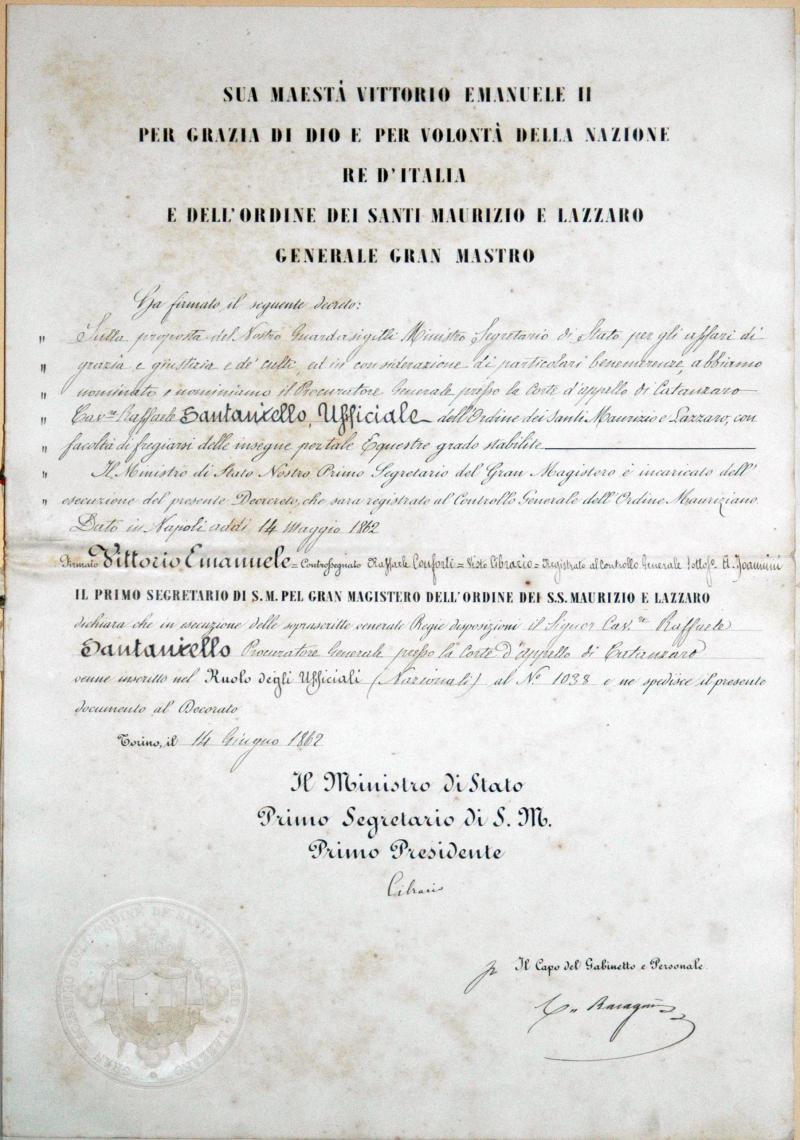 SUA MAESTÀ VITTORIO EMANUELE II
PER GRAZIA DI DIO E PER VOLONTÀ DELLA NAZIONE
RE D'ITALIA
E DELL'ORDINE DEI SANTI MAURIZIO E LAZZARO
GENERALE GRAN MASTRO
Ha firmato il seguente decreto:
" Sulla proposta del Nostro Guardasigilli Ministro Segretario di Stato per gli affari di
" grazia e giustizia e de' culti, ed in considerazione di particolari benemerenze, abbiamo
" nominato e nominiamo il Procuratore Generale presso la Corte d'appello di Catanzaro
" Cav.re Raffaele Santaniello, Ufficiale dell'Ordine dei Santi Maurizio e Lazzaro, con
" facoltà di fregiarsi delle insegne per tale Equestre grado stabilite
" Il Ministro di Stato Nostro Primo Segretario del Gran Magistero è incaricato dell'
" esecuzione del presente Decreto, che sarà registrato al Controllo Generale dell'Ordine Mauriziano.
Dato in Napoli addì 14 Maggio 1862
Firmato Vittorio Emanuele = Controssegnato Raffaele Conforti = Visto Cibrario = Registrato al Controllo Generale sottos.o A. Joannini
IL PRIMO SEGRETARIO DI S.M. PEL GRAN MAGISTERO DELL'ORDINE DEI S.S. MAURIZIO E LAZZARO
dichiara che in esecuzione delle soprascritte venerate Regie disposizioni il Signor Cav.re Raffaele
Santaniello Procuratore Generale presso la Corte d'appello di Catanzaro
venne inscritto nel Ruolo degli Ufficiali (Nazionali) al N.o 1038 e ne spedisce il presente
documento al Decorato
Torino, il 14 Giugno 1862
Il Ministro di Stato
Primo Segretario di S. M.
Primo Presidente
Cibrario
Il Capo del Gabinetto e Personale
GRAN MAGISTERO DELL'ORDINE DE SANTI MAURIZIO E LAZZARO